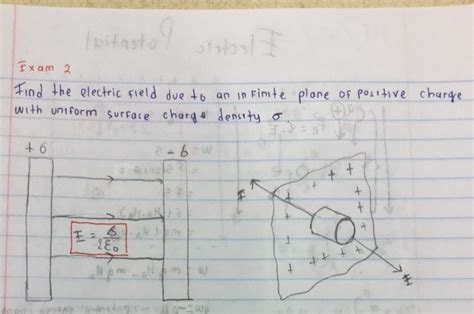 Exam 2
Find the electric field due to an infinite plane of positive charge
with uniform surface charge density σ.
+σ
-σ
E
E = σ/2ε₀
E